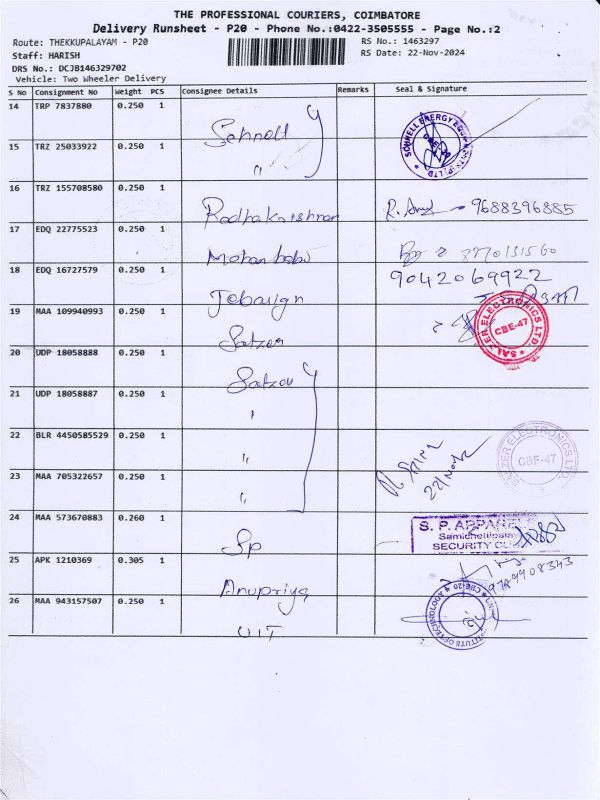 THE PROFESSIONAL COURIERS, COIMBATORE
Delivery Runsheet - P20 - Phone No.:0422-3505555 - Page No.:2
Route: THEKKUPALAYAM - P20
RS No.: 1463297
Staff: HARISH
RS Date: 22-Nov-2024
DRS No.: DCJB146329702
Vehicle: Two Wheeler Delivery
S No Consignment No Weight PCS Consignee Details Remarks Seal & Signature
14 TRP 7837880 0.250 1 Schnell
SCHNELL ENERGY EQUIPMENTS P LTD
CBE-20
15 TRZ 25033922 0.250 1 "
16 TRZ 155708580 0.250 1 Radhakrishnan 9688396885
17 EDQ 22775523 0.250 1 Mohan babu
18 EDQ 16727579 0.250 1 9042069922
19 MAA 109940993 0.250 1 Salzer
SALZER ELECTRONICS LTD.
CBE-47
20 UDP 18058888 0.250 1 Salzer
21 UDP 18058887 0.250 1 "
22 BLR 4450585529 0.250 1 "
22/Nov
SALZER ELECTRONICS LTD.
CBE-47
23 MAA 705322657 0.250 1 "
24 MAA 573670883 0.260 1 Sp
S. P. APPARELS
SECURITY
25 APK 1210369 0.305 1 Anupriya
9789908343
26 MAA 943157507 0.250 1 UIT
INSTITUTE OF TECHNOLOGY
CBE-20